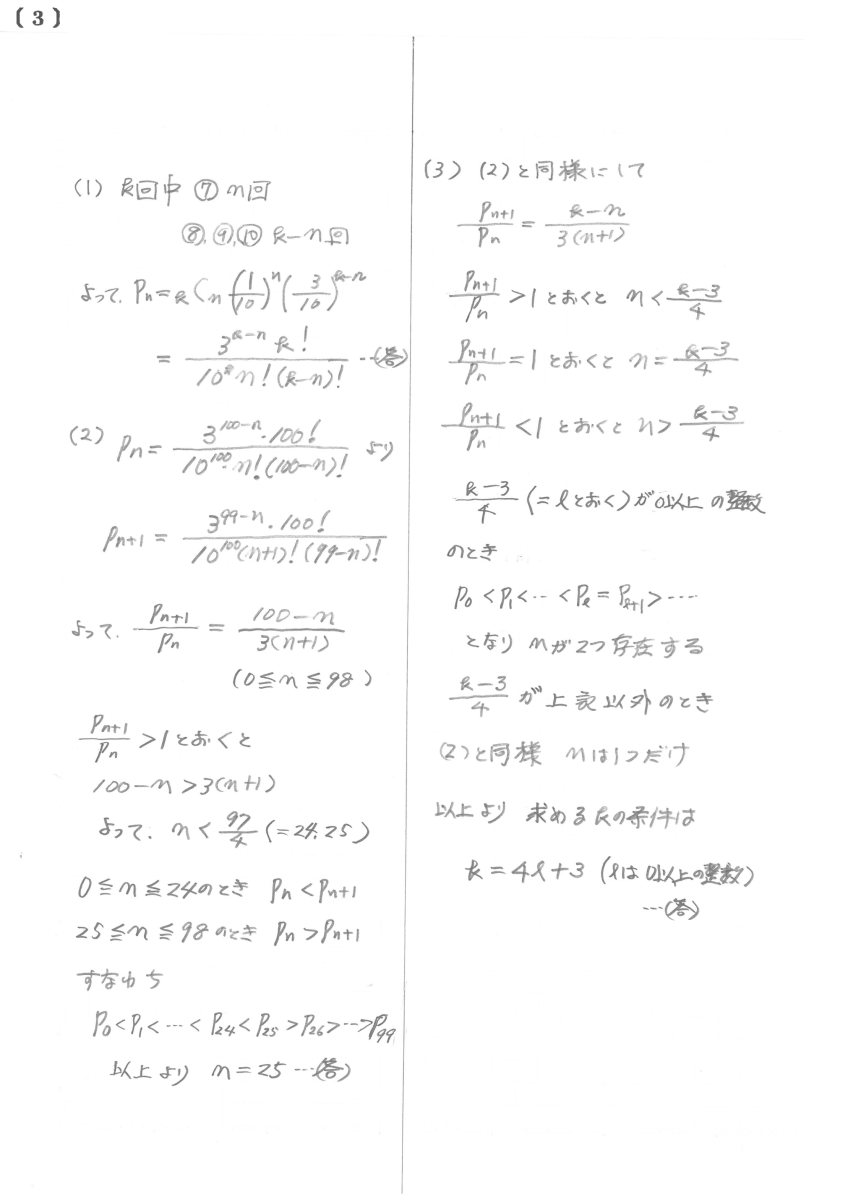 〔3〕
(1) k回中 ⑦ n回
⑧,⑨,⑩ k-n回
よって、 Pn = kCn (1/10)^n (3/10)^(k-n)
= 3^(k-n) k! / 10^k n! (k-n)! …(答)
(2) Pn = 3^(100-n)・100! / 10^100・n! (100-n)! より
Pn+1 = 3^(99-n)・100! / 10^100 (n+1)! (99-n)!
よって、 Pn+1/Pn = 100-n / 3(n+1)
(0≦n≦98)
Pn+1/Pn >1 とおくと
100-n>3(n+1)
よって、 n< 97/4 (=24.25)
0≦n≦24のとき Pn<Pn+1
25≦n≦98のとき Pn>Pn+1
すなわち
P0<P1<…<P24<P25>P26>…>P99
以上より n=25 …(答)
(3) (2)と同様にして
Pn+1/Pn = k-n / 3(n+1)
Pn+1/Pn >1 とおくと n< k-3/4
Pn+1/Pn =1 とおくと n= k-3/4
Pn+1/Pn <1 とおくと n> k-3/4
k-3/4 (=lとおく)が0以上の整数
のとき
P0<P1<…<Pl=Pl+1>……
となり nが2つ存在する
k-3/4 が上記以外のとき
(2)と同様 nは1つだけ
以上より 求めるkの条件は
k=4l+3 (lは0以上の整数)
…(答)